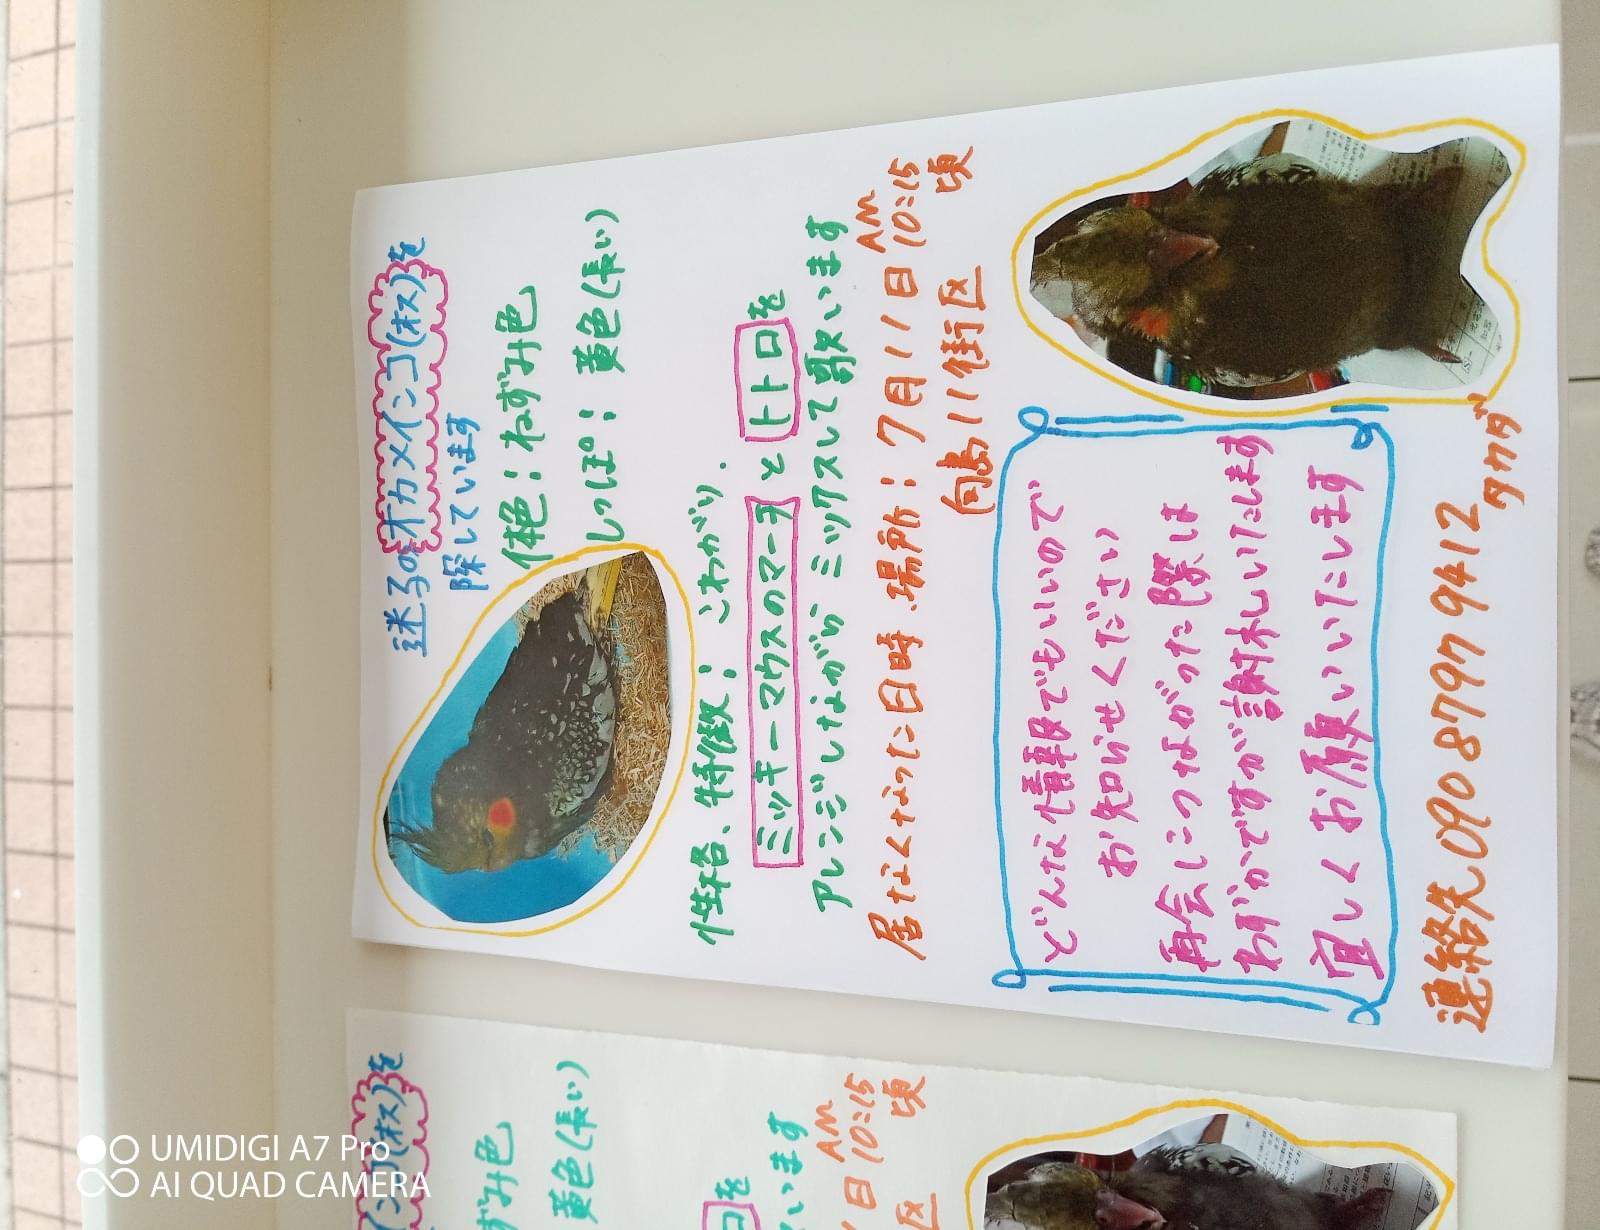 迷子のオカメインコ(オス)を
探しています
体色：ねずみ色
しっぽ：黄色(長い)
性格、特徴：こわがり.
ミッキーマウスのマーチとトトロを
アレンジしながら ミックスして歌います
居なくなった日時、場所：7月11日AM10:15頃
向島11街区
どんな情報でもいいので
お知らせください
再会につながった際は
わずかですが謝礼いたします
宜しくお願いいたします
連絡先 090 8797 9412
タケダ
インコ(オス)を
ずみ色
黄色(長い)
ロを
います
日AM10:15頃
区
UMIDIGI A7 Pro
AI QUAD CAMERA